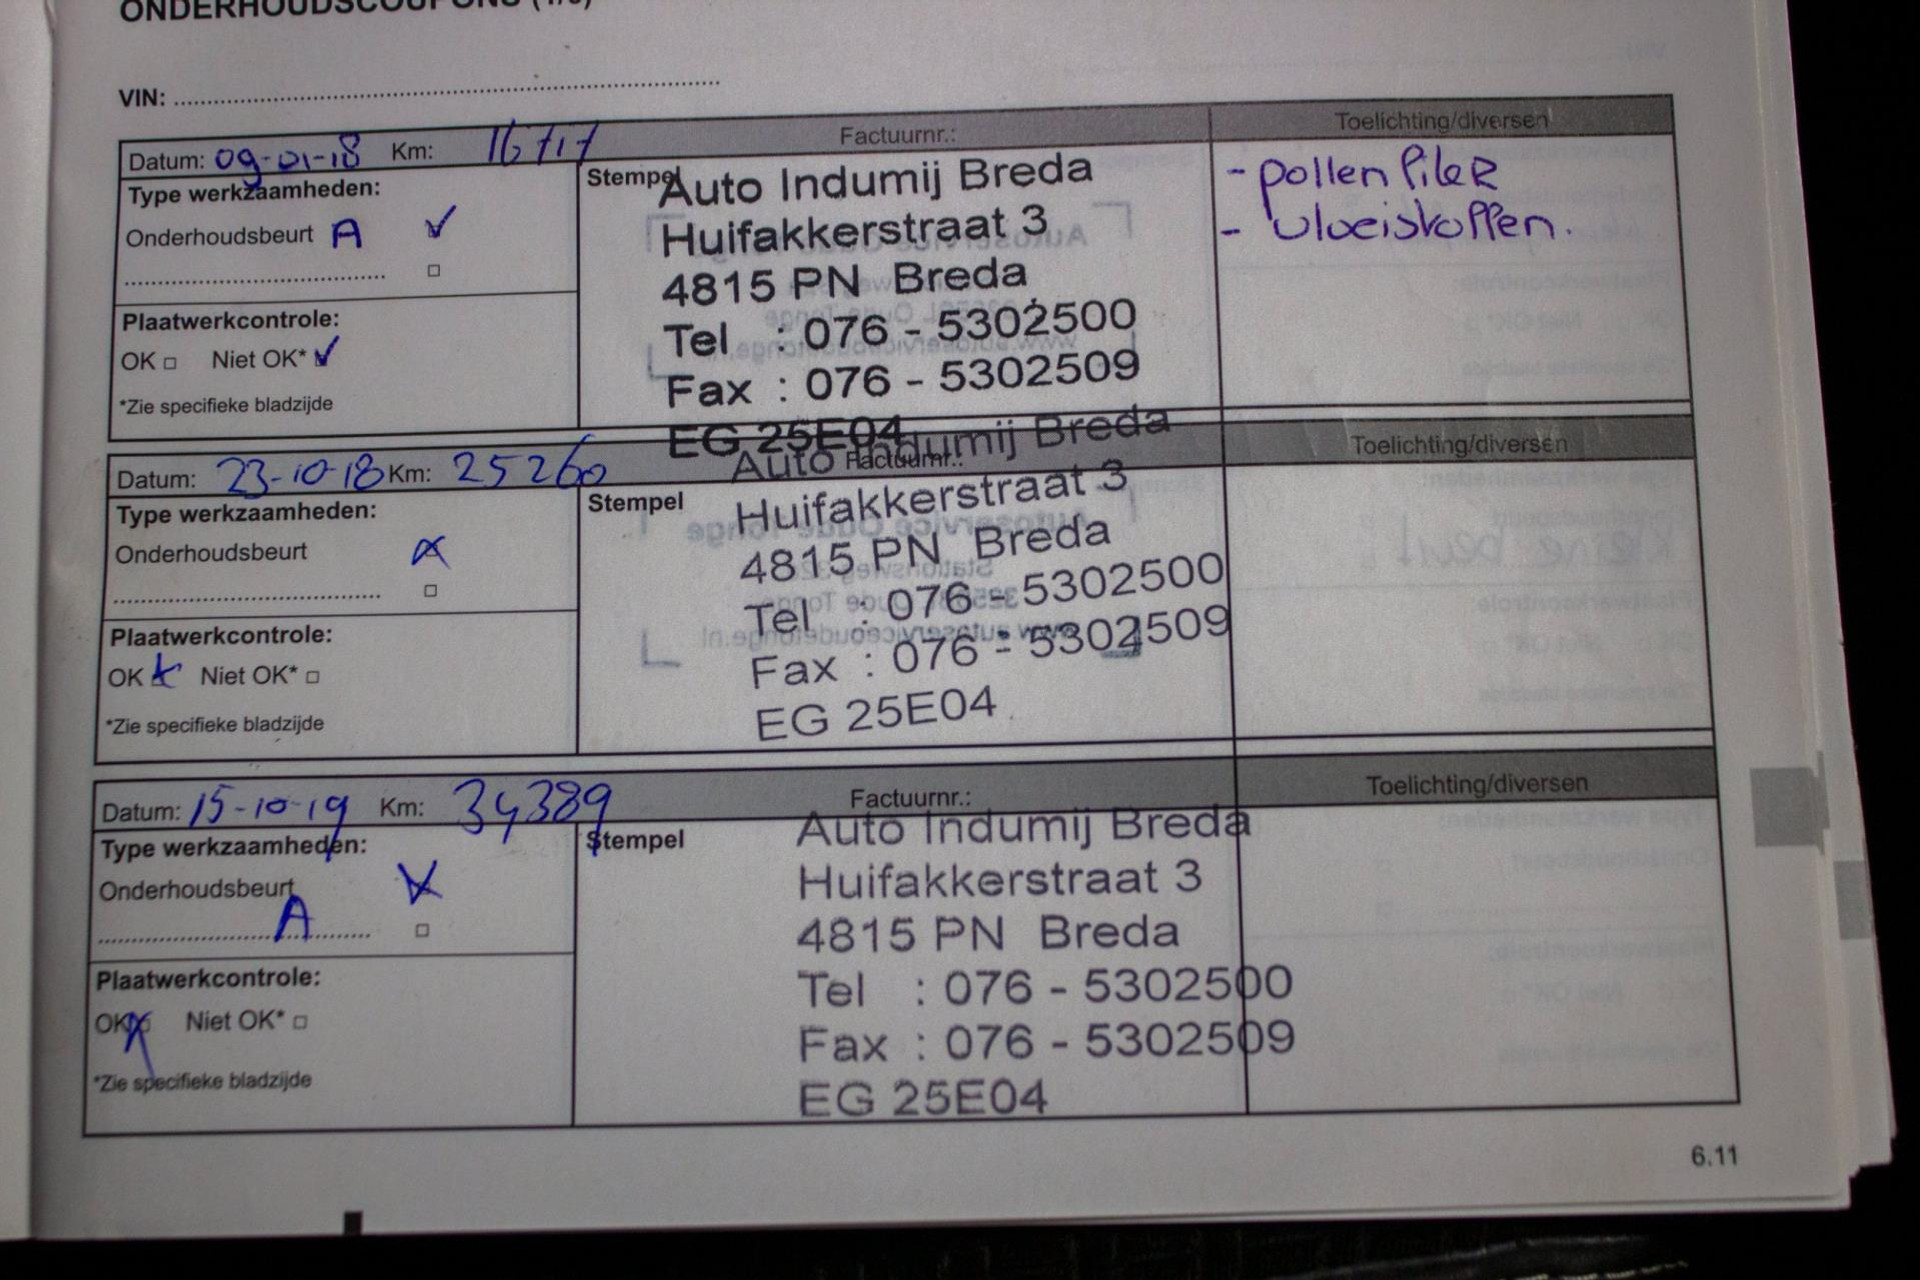 VIN:
Datum: 09-01-18 Km: 16717 Factuurnr.: Toelichting/diversen
Type werkzaamheden:
Onderhoudsbeurt A
Plaatwerkcontrole:
OK Niet OK*
*Zie specifieke bladzijde
Stempel
Auto Indumij Breda
Huifakkerstraat 3
4815 PN Breda
Tel : 076 - 5302500
Fax : 076 - 5302509
EG 25E04
- pollenfilter
- vloeistoffen.
Datum: 23-10-18 Km: 25260 Factuurnr.: Toelichting/diversen
Type werkzaamheden:
Onderhoudsbeurt
Plaatwerkcontrole:
OK Niet OK*
*Zie specifieke bladzijde
Stempel
Auto Indumij Breda
Huifakkerstraat 3
4815 PN Breda
Tel : 076 - 5302500
Fax : 076 - 5302509
EG 25E04
Datum: 15-10-19 Km: 34389 Factuurnr.: Toelichting/diversen
Type werkzaamheden:
Onderhoudsbeurt
A
Plaatwerkcontrole:
OK Niet OK*
*Zie specifieke bladzijde
Stempel
Auto Indumij Breda
Huifakkerstraat 3
4815 PN Breda
Tel : 076 - 5302500
Fax : 076 - 5302509
EG 25E04
6.11